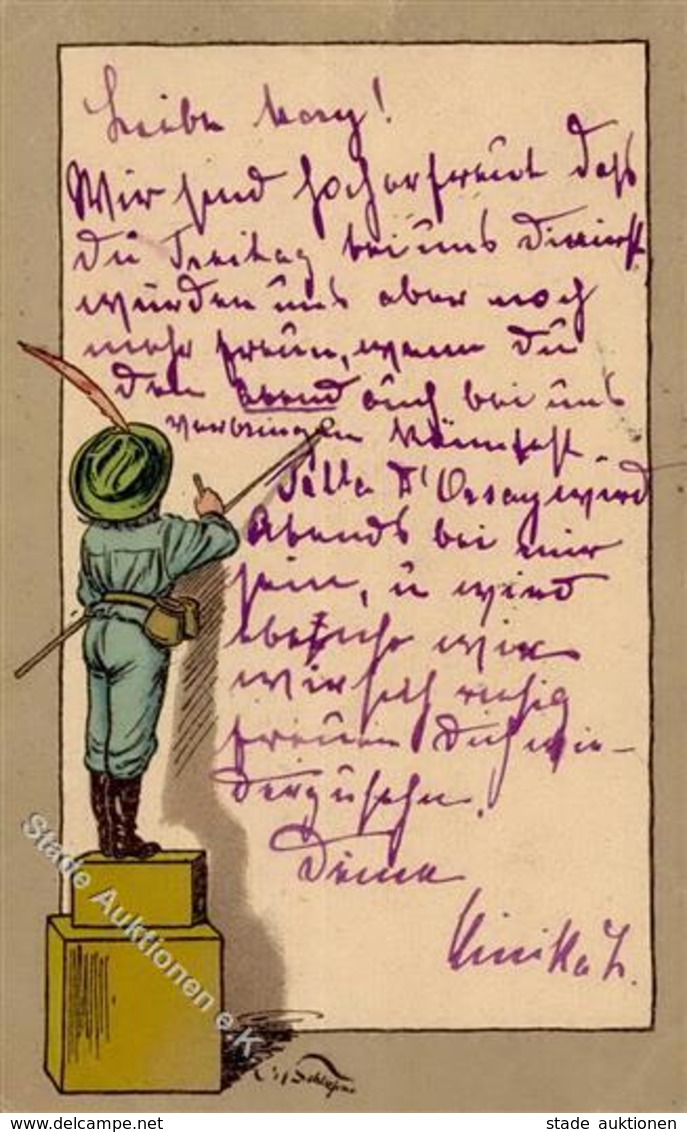 Liebe Mary!
Wir sind hocherfreut daß
du Freitag bei uns dinierst
würden uns aber noch
mehr freun, wenn du
den Abend auch bei uns
verbringen könntest.
D'Orsay wird
Abends bei mir
sein, u wird
wie
wir sich riesig
freuen Dich wie-
derzusehn.
Deine
Stade Auktionen e.K
stade auktionen